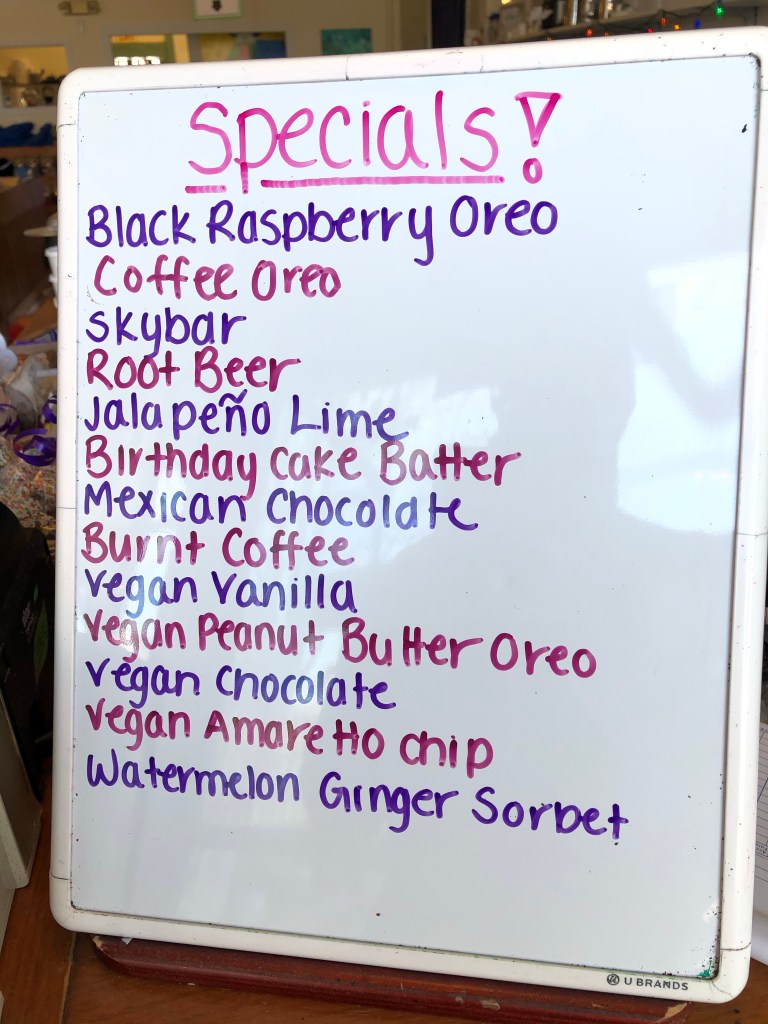 Specials!
Black Raspberry Oreo
Coffee Oreo
skybar
Root Beer
Jalapeño Lime
Birthday Cake Batter
Mexican Chocolate
Burnt Coffee
vegan Vanilla
vegan Peanut Butter Oreo
vegan Chocolate
vegan Amaretto chip
Watermelon Ginger Sorbet
U BRANDS